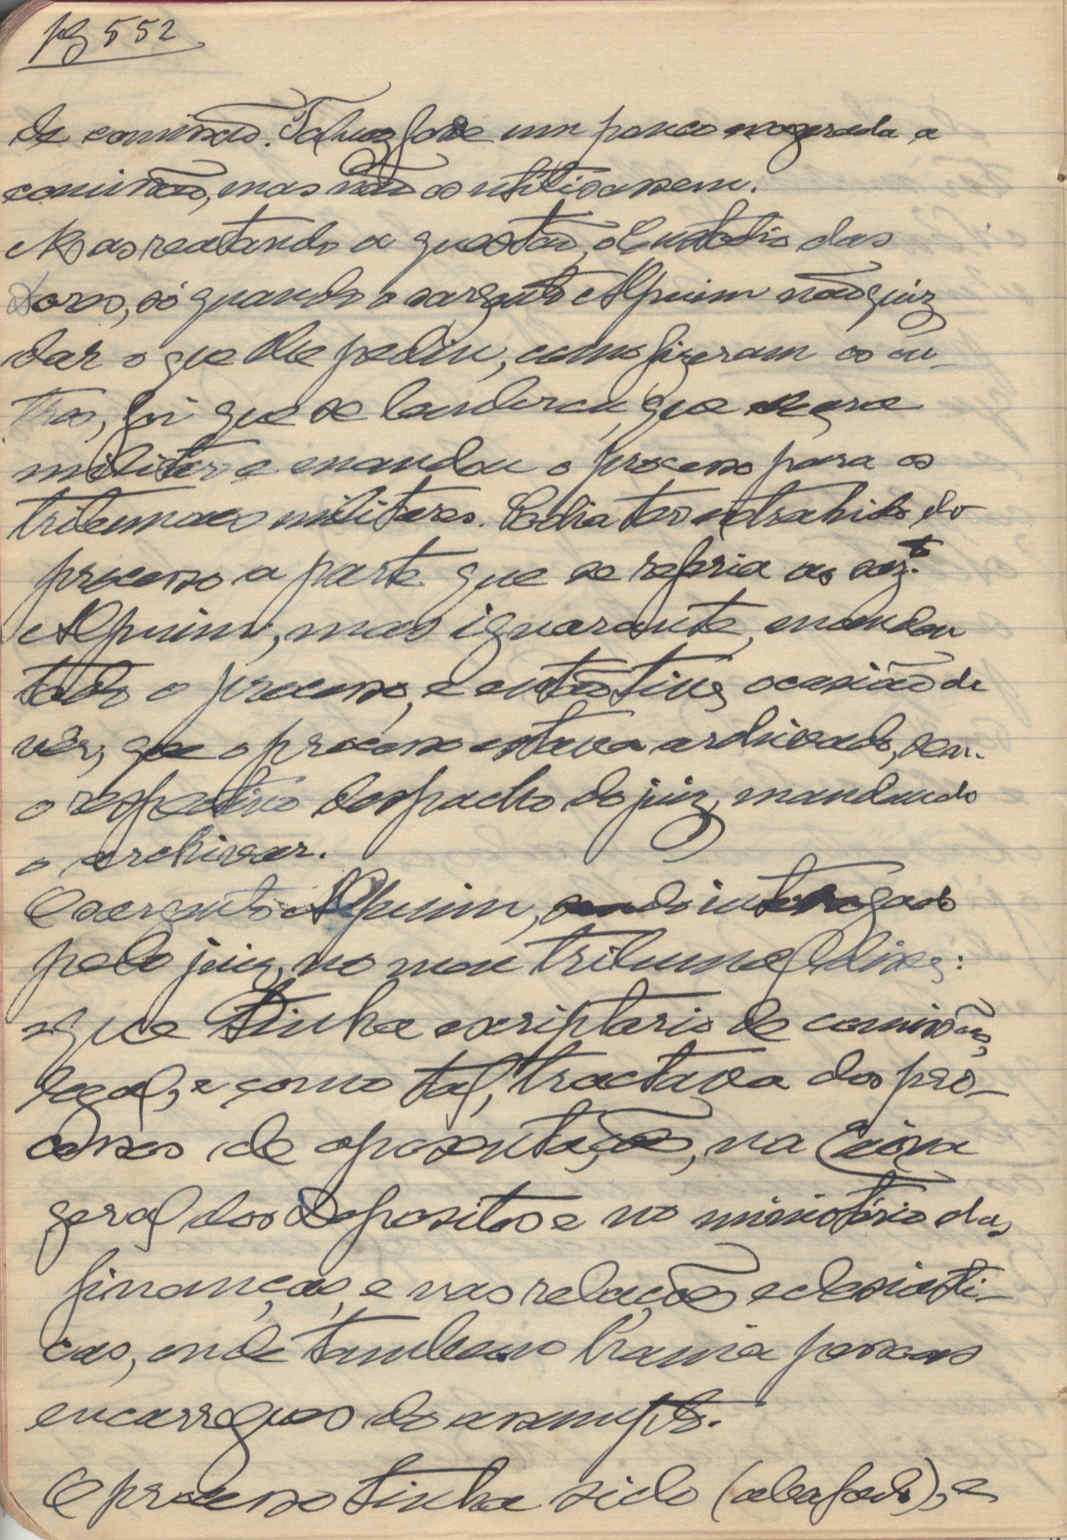 pg 552
de comissão. Talvez fosse um pouco exagerada a
comissão, mas não os utilisassem.
Mas reatando a questão, o Custodio das
Dores, só quando o sargento Alpuim não quiz
dar o que lhe pediu, como fizeram os ou-
tros, foi que se lembrou, que era
militar e mandou o processo para os
tribunaes militares. Podia ter extrahido do
processo a parte que se referia ao sarg.to
Alpuim, mas ignorante, mandou
todo o processo, e então tive ocasião de
vêr, que o processo estava archivado, sem
o respectivo despacho do juiz, mandando
o archivar.
O sargento Alpuim, sendo interrogado
pelo juiz, no meu tribunal disse:
que tinha escriptorio de comissões,
legal, e como tal, tractava dos pro-
cessos de aposentações, na Caixa
geral dos Depositos e no ministério das
finanças, e nas relações eclesiasti-
cas, onde tambem havia pessoas
encarregues do assumpto.
O processo tinha sido (abafado), e